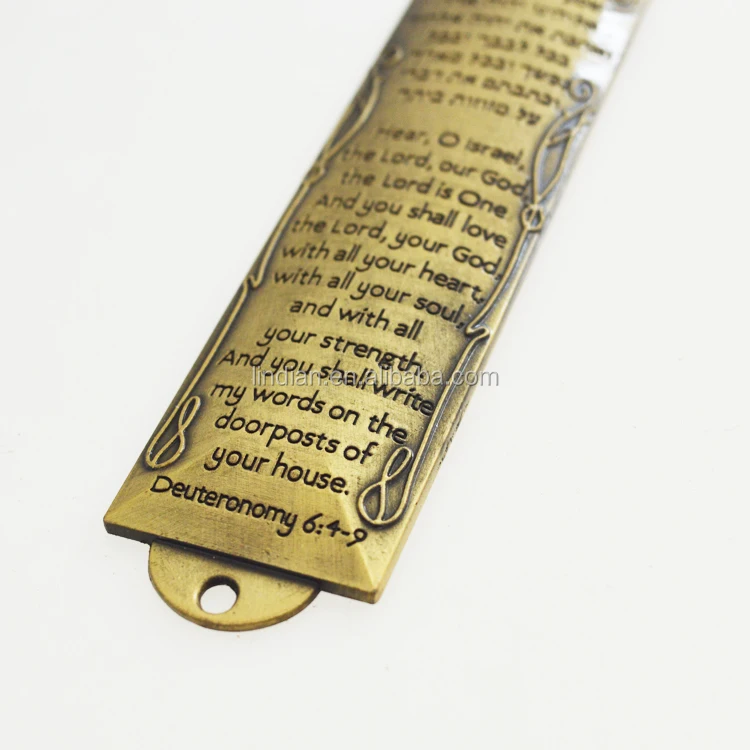 בכל לבבך ובכל
נפשך ובכל
וכתבתם את
על מזוזות ביתך
Hear, O Israel,
the Lord, our God,
the Lord is One
And you shall love
the Lord, your God,
with all your heart,
with all your soul,
and with all
your strength.
And you shall write
my words on the
doorposts of
your house.
Deuteronomy 6:4-9
lindian.en.alibaba.com